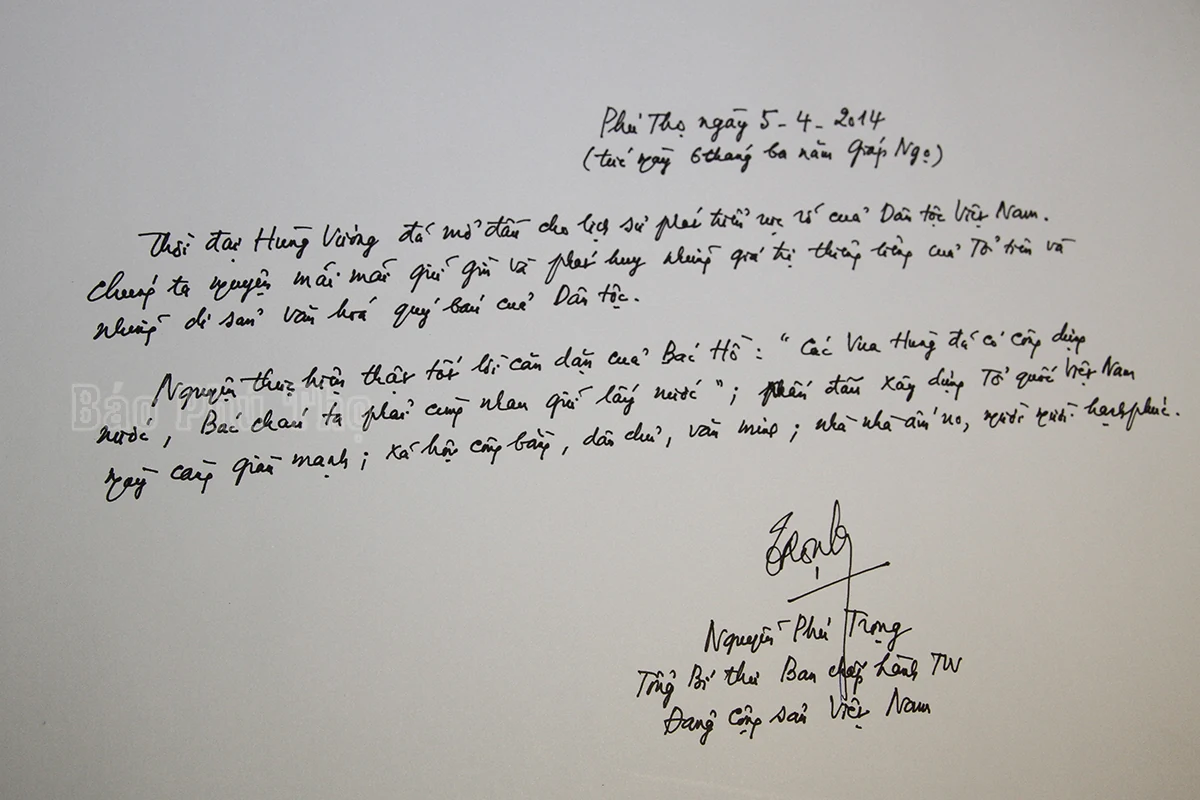 Phú Thọ ngày 5-4-2014
(tức ngày 6 tháng ba năm Giáp Ngọ)
Thời đại Hùng Vương đã mở đầu cho lịch sử phát triển rực rỡ của Dân tộc Việt Nam.
Chúng ta nguyện mãi mãi giữ gìn và phát huy những giá trị thiêng liêng của Tổ tiên và
những di sản văn hoá quý báu của Dân tộc.
Nguyện thực hiện thật tốt lời căn dặn của Bác Hồ: "Các Vua Hùng đã có công dựng
nước, Bác cháu ta phải cùng nhau giữ lấy nước"; phấn đấu xây dựng Tổ quốc Việt Nam
ngày càng giàu mạnh; xã hội công bằng, dân chủ, văn minh; nhà nhà ấm no, người người hạnh phúc.
Báo Phú Thọ
Trọng
Nguyễn Phú Trọng
Tổng Bí thư Ban chấp hành TW
Đảng Cộng sản Việt Nam